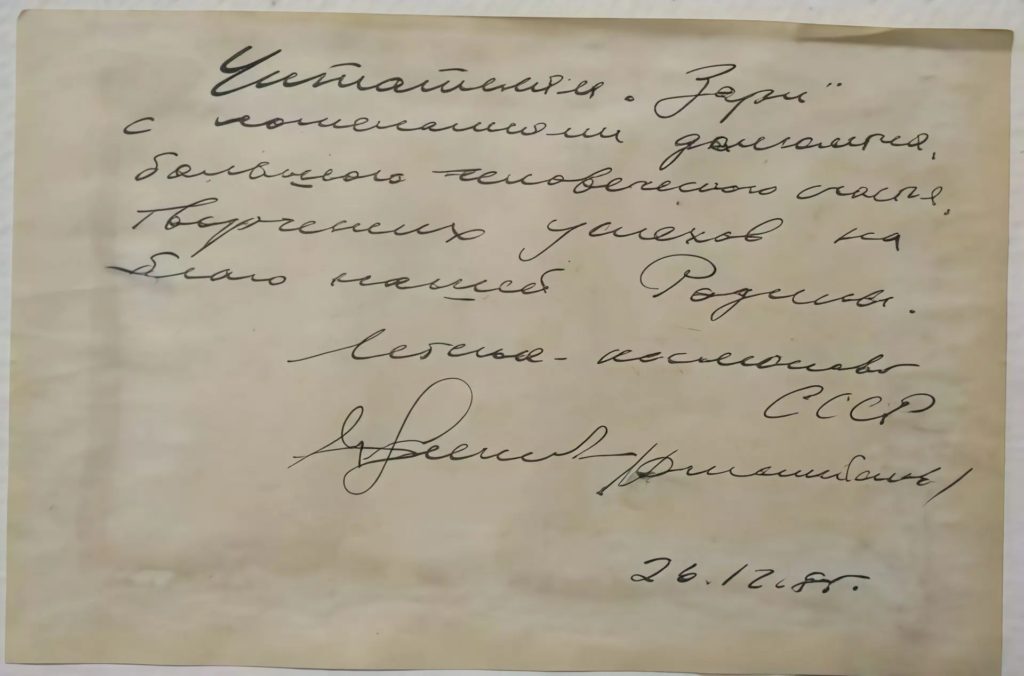 Читателям „Зари"
с пожеланиями долголетия,
большого человеческого счастья,
творческих успехов на
благо нашей Родины.
Летчик-космонавт
СССР
26.12.85г.